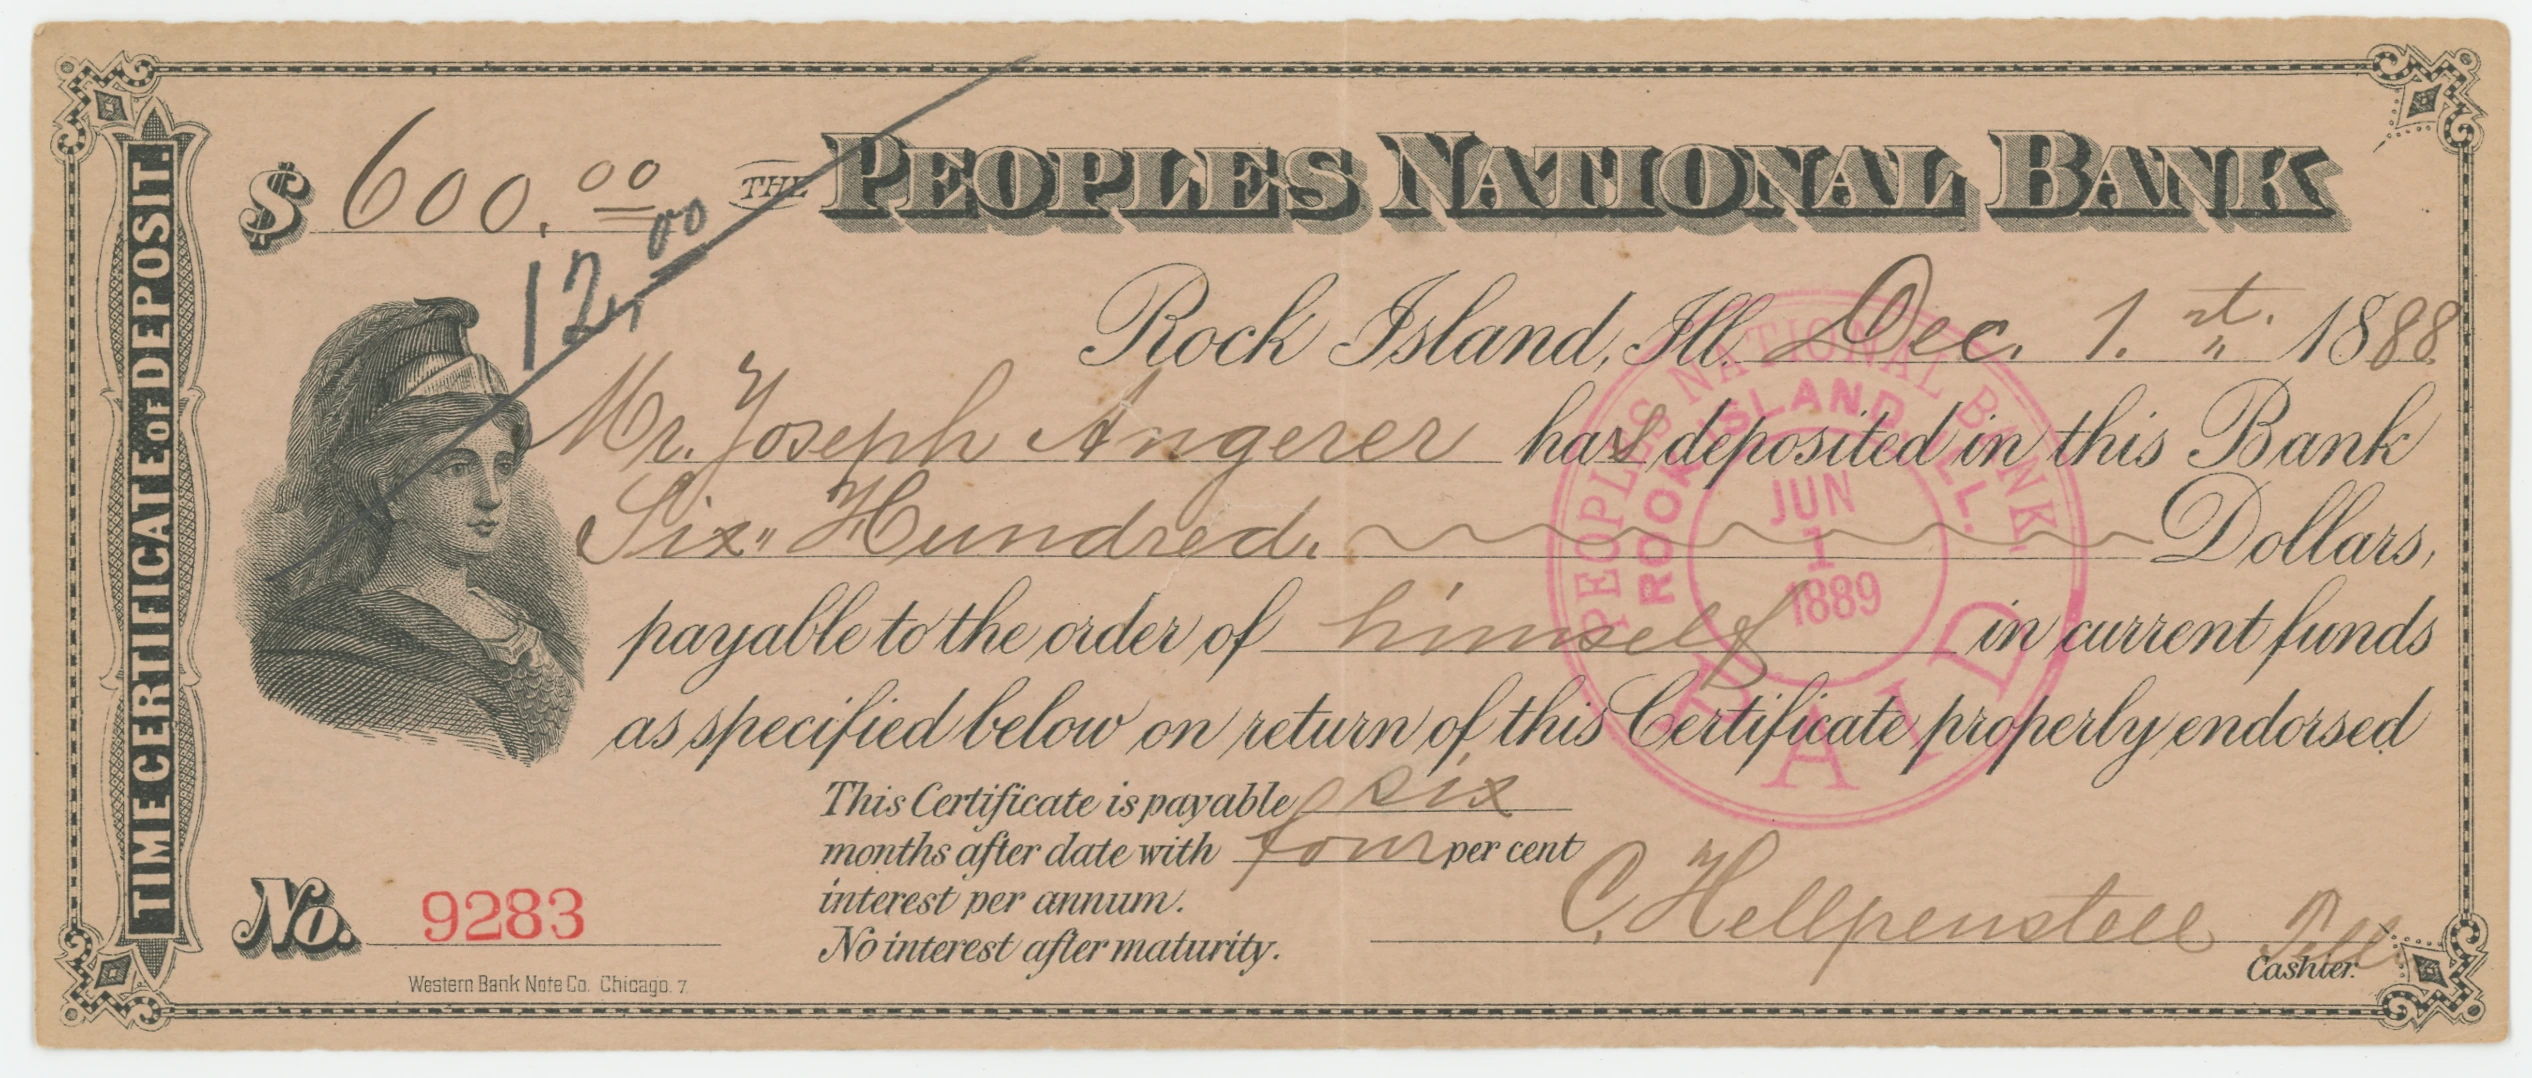 TIME CERTIFICATE OF DEPOSIT.
$ 600.00 THE PEOPLES NATIONAL BANK
12.00
Rock Island, Ill. Dec. 1.st. 1888.
Mr. Joseph Angerer has deposited in this Bank
Six Hundred. Dollars,
payable to the order of himself in current funds
as specified below on return of this Certificate properly endorsed
This Certificate is payable six
months after date with four per cent
interest per annum.
No interest after maturity.
C. Hellpenstell Tell.
Cashier.
No. 9283
Western Bank Note Co. Chicago. 7
PEOPLES NATIONAL BANK.
ROCK ISLAND, ILL.
JUN
1
1889
PAID